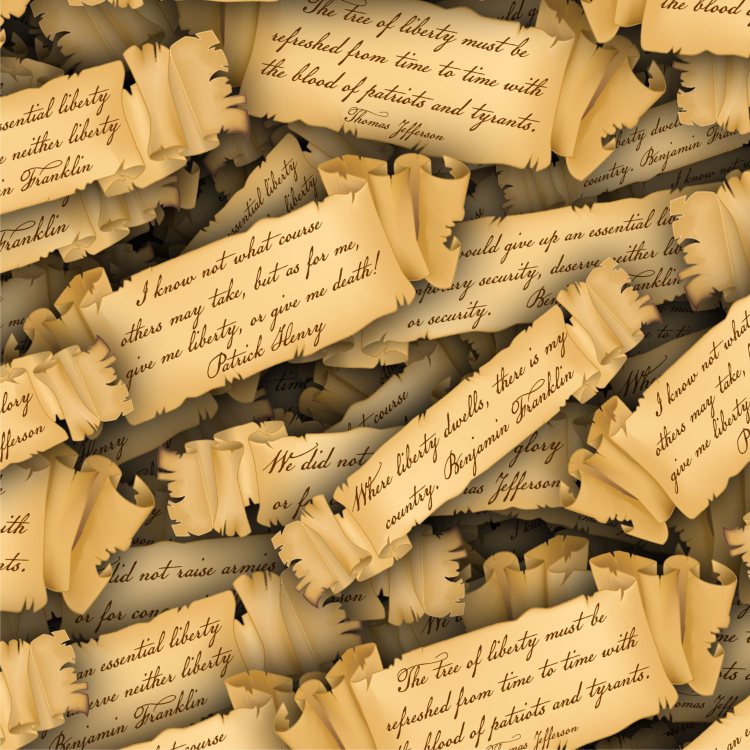 The tree of liberty must be
refreshed from time to time with
the blood of patriots and tyrants.
Thomas Jefferson
the blood
essential liberty
neither liberty
Franklin
Franklin
essential liberty
liberty
liberty dwells
country. Benjamin
I know not
I know not what course
others may take, but as for me,
give me liberty, or give me death!
Patrick Henry
would give up an essential
temporary security, deserve neither
or security.
glory
Jefferson
Henry
time
course
We did not
or
glory
Jefferson
Where liberty dwells, there is my
country. Benjamin Franklin
I know not what
others may take,
give me liberty
with
did not raise armies
or for
We
an essential liberty
neither liberty
Benjamin Franklin
The tree of liberty must be
refreshed from time to time with
blood of patriots and tyrants.
Thomas Jefferson
course